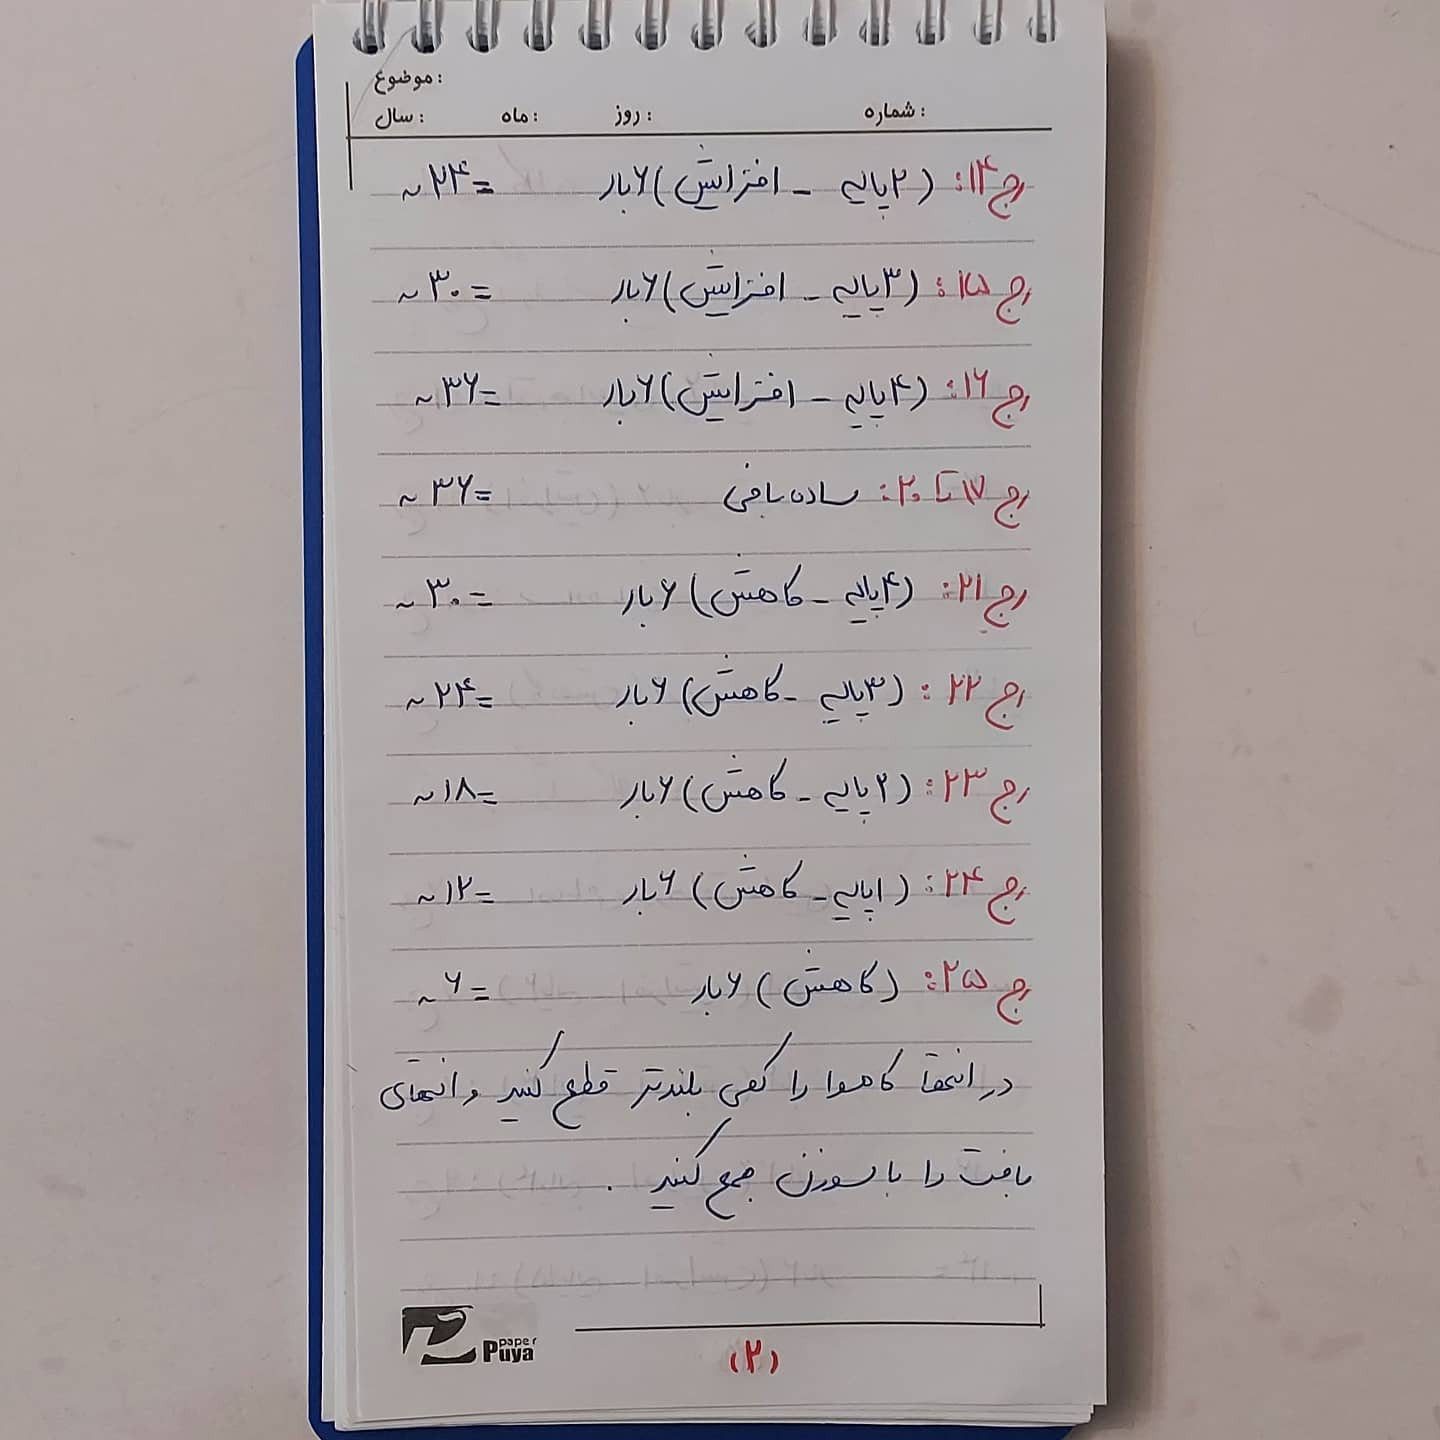 موضوع:
سال: ماه: روز: شماره:
رج ۱۴: (۲ پایه - افزایش) ۶ بار =۲۴~
رج ۱۵: (۳ پایه - افزایش) ۶ بار =۳۰~
رج ۱۶: (۴ پایه - افزایش) ۶ بار =۳۶~
رج ۱۷ تا ۲۰: ساده بافی =۳۶~
رج ۲۱: (۴ پایه - کاهش) ۶ بار =۳۰~
رج ۲۲: (۳ پایه - کاهش) ۶ بار =۲۴~
رج ۲۳: (۲ پایه - کاهش) ۶ بار =۱۸~
رج ۲۴: (۱ پایه - کاهش) ۶ بار =۱۲~
رج ۲۵: (کاهش) ۶ بار =۶~
در انتها کاموا را کمی بلندتر قطع کنید و انتهای
بافت را با سوزن جمع کنید .
paper
Puya
(۲)